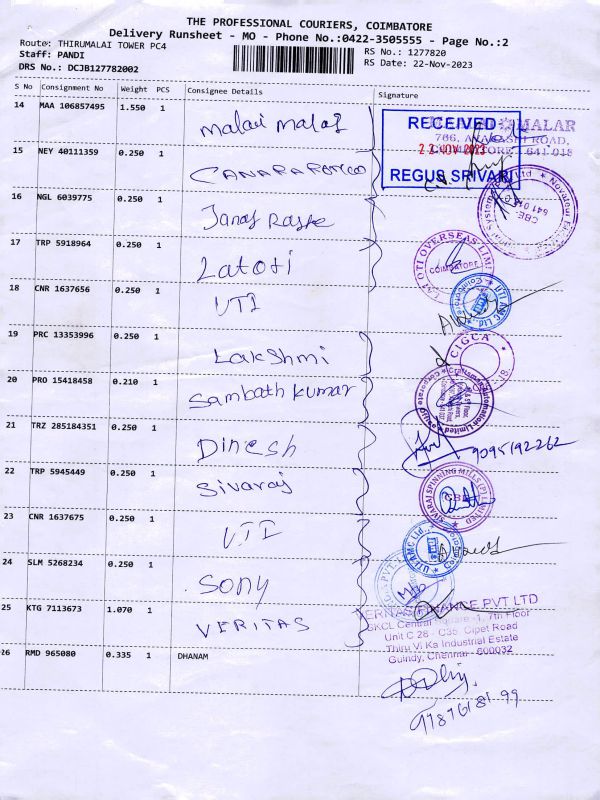 THE PROFESSIONAL COURIERS, COIMBATORE
Delivery Runsheet - MO - Phone No.:0422-3505555 - Page No.:2
Route: THIRUMALAI TOWER PC4
Staff: PANDI
RS No.: 1277820
DRS No.: DCJB127782002
RS Date: 22-Nov-2023
S No Consignment No Weight PCS Consignee Details Signature
14 MAA 106857495 1.550 1 malai malar
RECEIVED
MALAR
22 NOV 2023
REGUS SRIVARI
15 NEY 40111359 0.250 1
16 NGL 6039775 0.250 1
17 TRP 5918964 0.250 1 Latoti
OTI OVERSEAS LIMI
COIMBATORE
18 CNR 1637656 0.250 1 UTI
UTI AMC Ltd.
19 PRC 13353996 0.250 1 Lakshmi
CIGCA
20 PRO 15418458 0.210 1 Sambath kumar
Craftsman Automation Limited
Corporate
21 TRZ 285184351 0.250 1 Dinesh
9095192262
22 TRP 5945449 0.250 1 Sivaraj
SIVARAJ SPINNING MILLS (P) LIMITED
CBE
23 CNR 1637675 0.250 1 UTI
UTI AMC Ltd.
24 SLM 5268234 0.250 1 Sony
25 KTG 7113673 1.070 1 VERITAS
FINANCE PVT LTD
SKCL Central Square -1, 7th Floor
Unit C 28 - C35 Cipet Road
Thiru Vi Ka Industrial Estate
Guindy, Chennai - 600032
26 RMD 965080 0.335 1 DHANAM